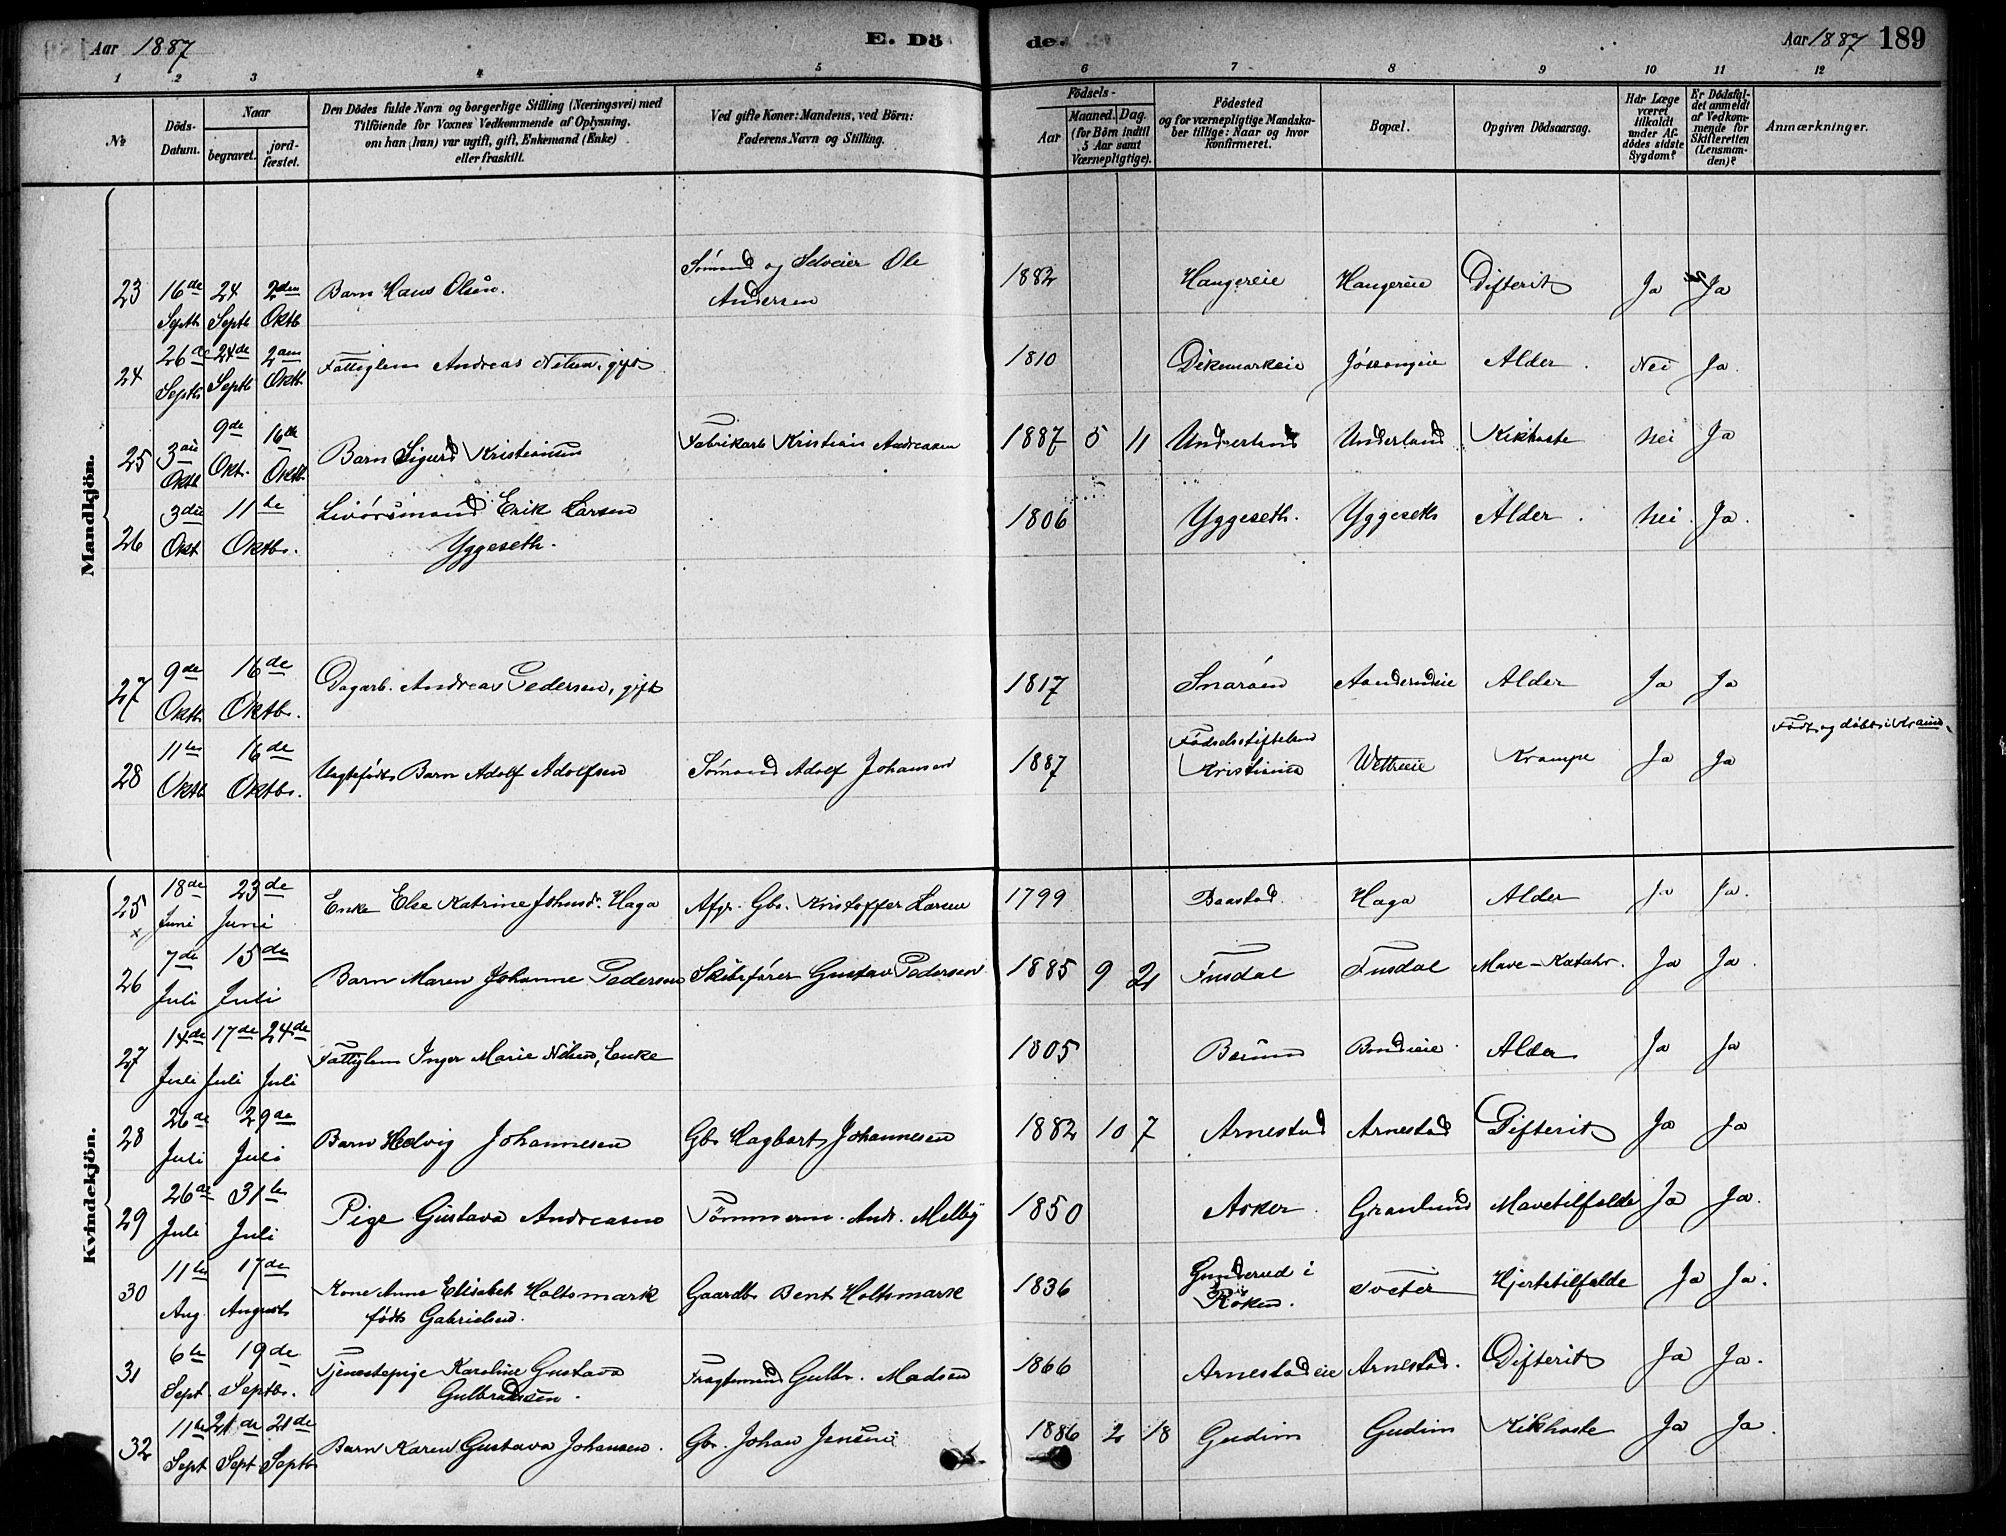 Aar 1887 E. Dö
de. Aar 1887 189
1 2 3 4 5 6 7 8 9 10 11 12
№
Döds-Datum.
Naar
begravet.
jordfæstet.
Den Dödes fulde Navn og borgerlige Stilling (Næringsvei) med
Tilföiende for Voxnes Vedkommende af Oplysning,
om han (hun) var ugift, gift, Enkemand (Enke)
eller fraskilt.
Ved gifte Koner: Mandens, ved Börn:
Faderens Navn og Stilling.
Födsels-
Aar
Maaned. Dag.
(for Börn indtil
5 Aar samt
Værnepligtige).
Födested
og for værnepligtige Mandskaber tillige: Naar og hvor
konfirmeret.
Bopæl.
Opgiven Dödsaarsag.
Har Læge
været
tilkaldt
under Afdödes sidste
Sygdom?
Er Dödsfaldet anmeldt
af Vedkommende for
Skifteretten
(Lensmanden)?
Anmærkninger.
Mandkjön.
23 16de Septb 24 Septb 2den Oktb Barn Hans Olsen. Sömand og Selveier Ole Andersen 1882 Hangereie Hangereie Difterit Ja Ja
24 26de Septb 24de Septb 2den Oktb Fattiglem Andreas Nilsen, gift 1810 Dikemarkeie Alder. Nei Ja.
25 3die Oktb 9de Okt. 16de Oktb. Barn Sigurd Kristiansen Fabrikarb Kristian Andreasen 1887 5 11 Underland Underland Kikhoste Nei Ja
26 3die Okt 11te Oktbr. Livörsmand Erik Larsen
Yggeseth. 1806 Yggeseth. Yggeseth Alder. Nei. Ja.
27 9de Oktb 16de Oktbr. Dagarb. Andreas Pedersen, gift 1817 Snaröen Alder Ja Ja
28 11te Oktb 16de Oktbr. Uægtefödt Barn Adolf Adolfsen Sömand Adolf Johansen 1887 Födselsstiftelsen Kristiania Krampe Ja Ja Födt og döbt i
Kvindekjön.
25 x 18de Juni 23de Juni Enke Else Katrine Johnsdr. Haga Afgr. Gbr. Kristoffer Larsen 1799 Baastad. Haga Alder Ja Ja.
26 7de Juli 15de Juli Barn Maren Johanne Pedersen Skibsförer Gustav Pedersen 1885 9 21 Fusdal Fusdal Mave-Katahr. Ja Ja.
27 14de Juli 17de Juli 24de Juli Fattiglem Inger Marie Nilsen, Enke 1805 Bærum Bondieie. Alder Ja Ja
28 26de Juli 29de Juli Barn Hedvig Johannesen Gbr Hagbart Johannesen 1882 10 7 Arnestad Arnestad Difterit Ja Ja
29 26de Juli 31te Juli Pige Gustava Andreasen Tömmerm. Andr. Melby 1850 Asker. Granlund Mavetilfælde Ja Ja.
30 11te Aug. 17de Augusts Kone Anne Elisabet Holtsmark
födt Gabrielsen. Gaardbr Bent Holtsmark 1836 Gunderud i
Röken. Tveter Hjertetilfælde Ja Ja.
31 6te Sept 19de Septbr. Tjenestepige Karoline Gustava
Gulbrandsen. Fragtemand Gulbr. Madsen 1866 Arnestadeie Arnestad. Difterit Ja Ja.
32 11te Sept 21de Sept 21de Septb Barn Karen Gustava Johansen. Gbr. Johan Jensen 1886 2 18 Gudim Gudim Kikhoste Ja Ja.